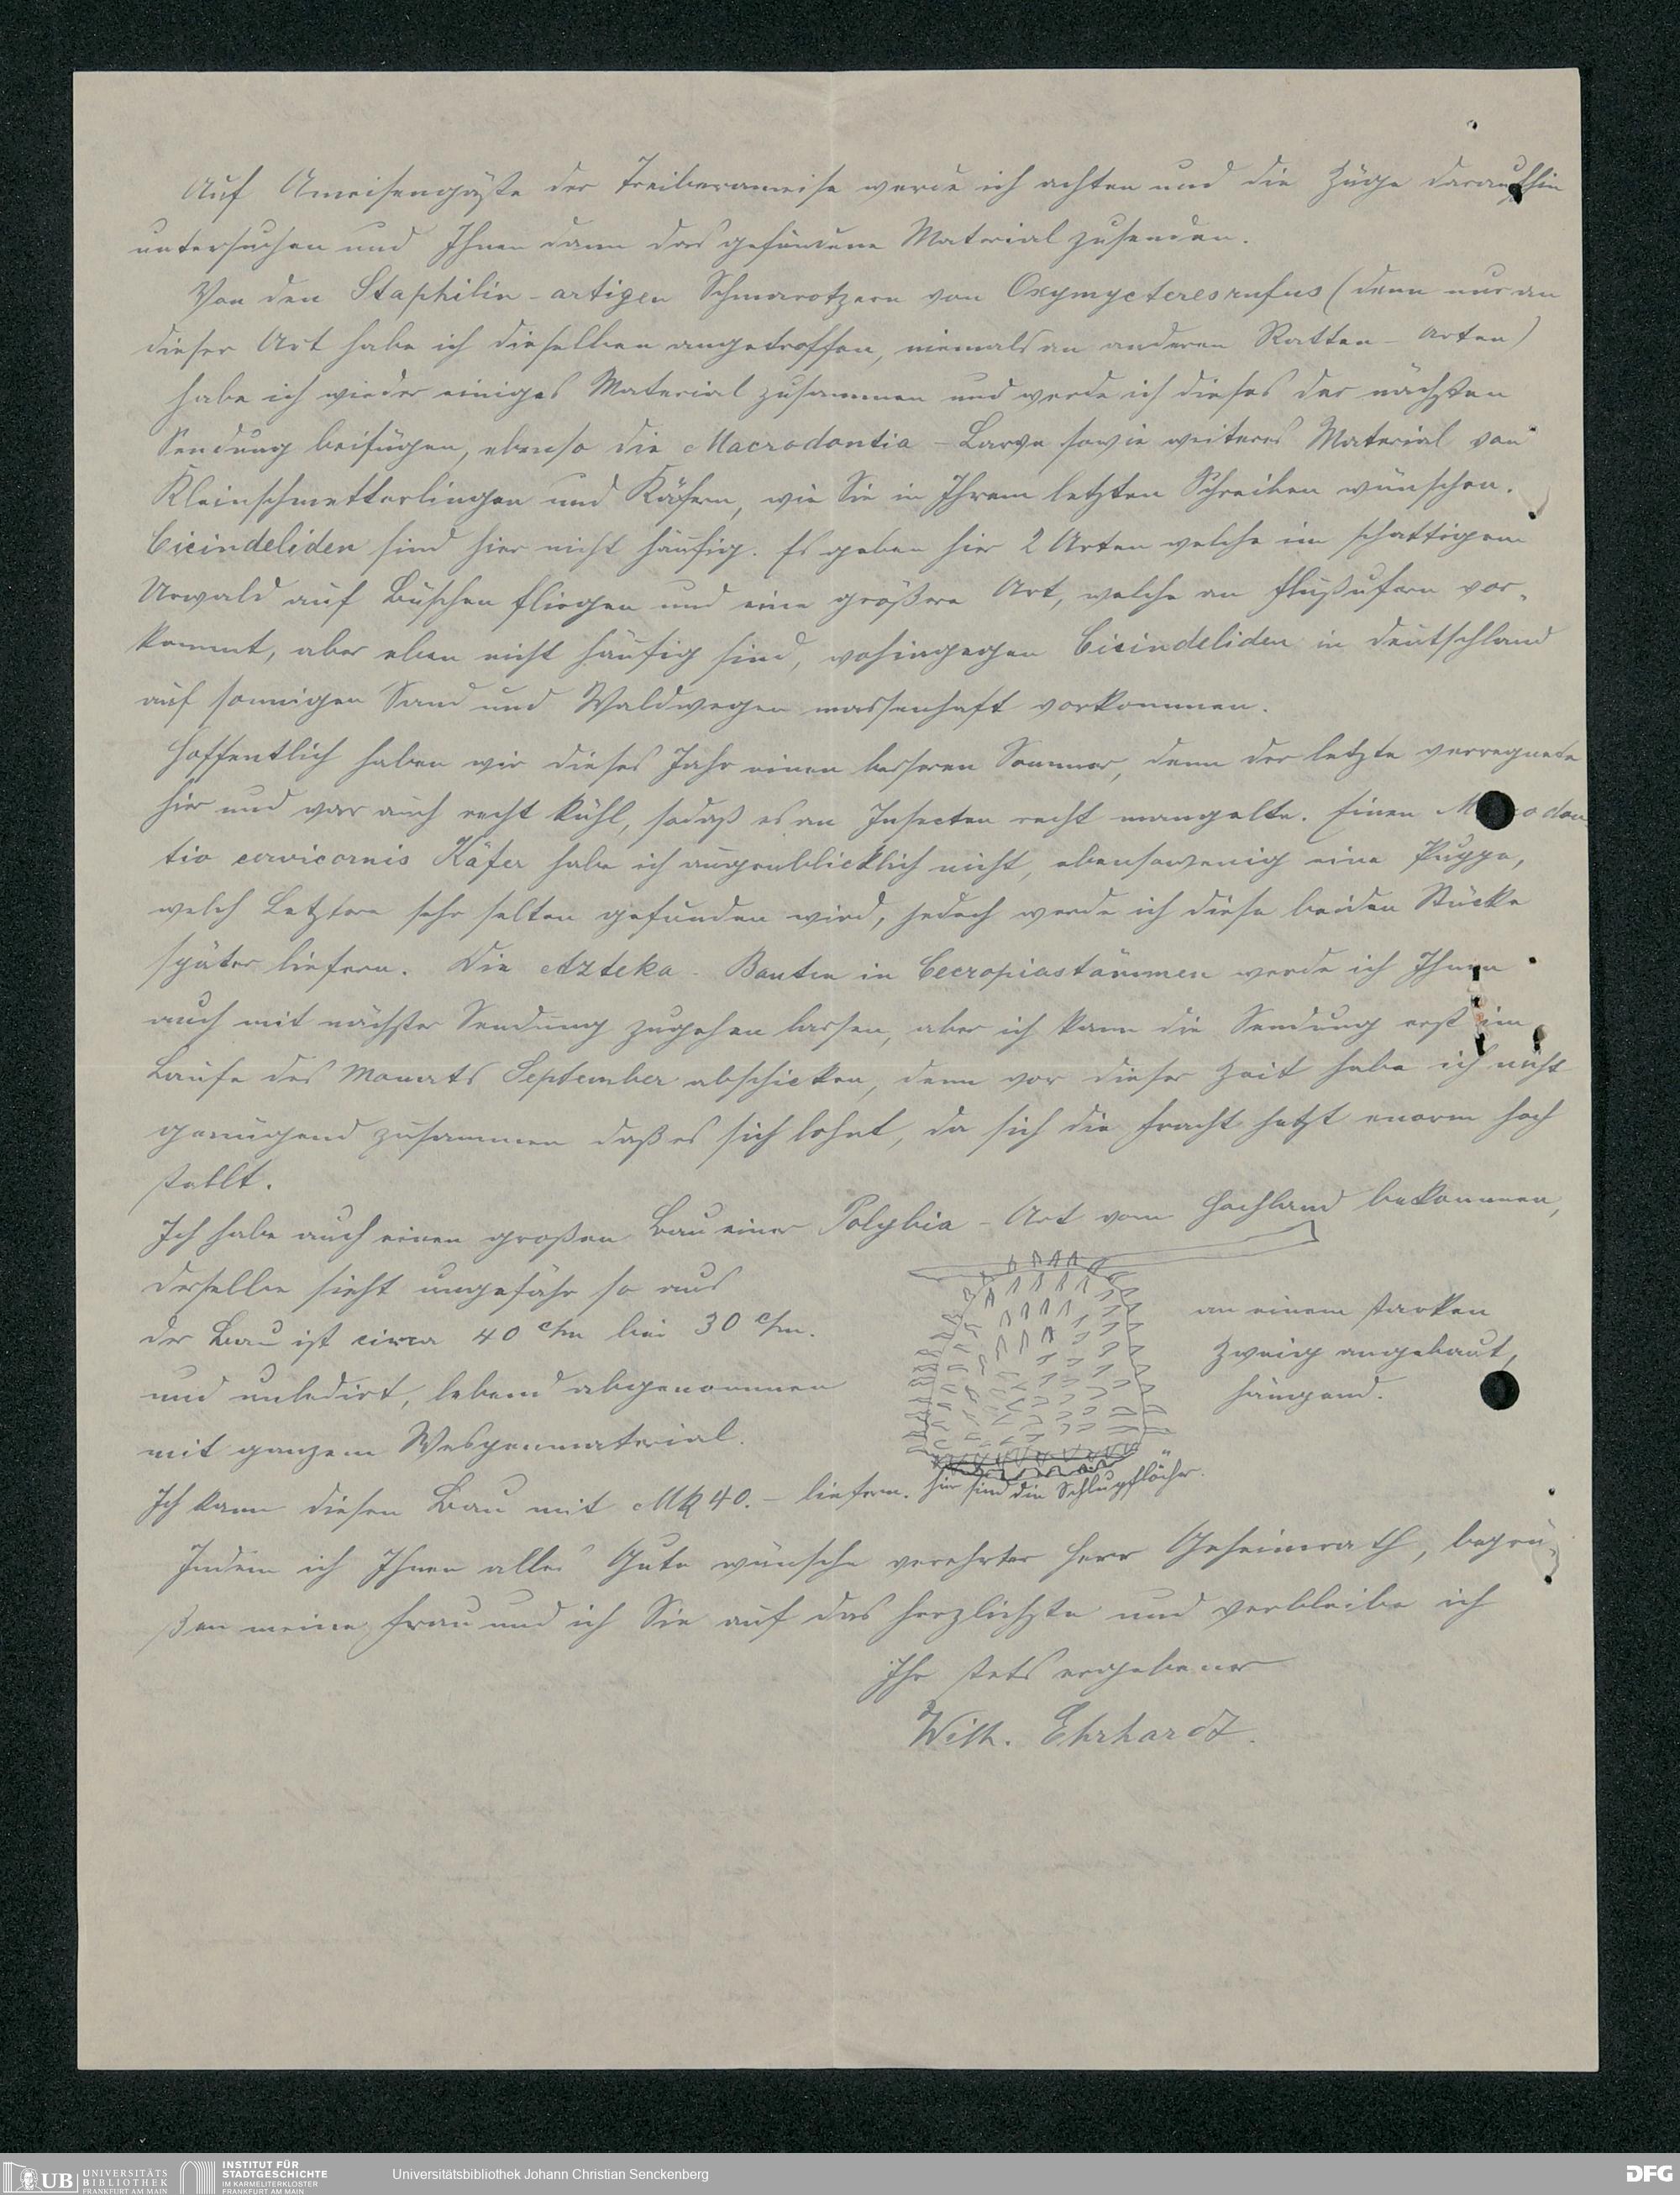 Auf Ameisengäste der Treiberameise werde ich achten und die Züge daraufhin
untersuchen und Ihnen dann das gefundene Material zusenden.
Von den Staphilin-artigen Schmarotzern von Oxymycteres rufus (denn nur an
dieser Art habe ich dieselben angetroffen, niemals an anderen Ratten-Arten)
habe ich wieder einiges Material zusammen und werde ich dieses der nächsten
Sendung beifügen, ebenso die Macrodontia-Larve sowie weiteres Material von
Kleinschmetterlingen und Käfern, wie Sie in Ihrem letzten Schreiben wünschen.
Cicindeliden sind hier nicht häufig. Es geben hier 2 Arten welche im schattigem
Urwald auf Büschen fliegen und eine größere Art, welche an Flußufern vor-
kommt, aber eben nicht häufig sind, wohingegen Cicindeliden in Deutschland
auf sonnigen Sand und Waldwegen massenhaft vorkommen.
Hoffentlich haben wir dieses Jahr einen besseren Sommer, denn der letzte verregnete
hier und war auch recht kühl, sodaß es an Insecten recht mangelte. Einen M odon
tio cervicornis Käfer habe ich augenblicklich nicht, ebensowenig eine Puppe,
welch Letztere sehr selten gefunden wird, jedoch werde ich diese beiden Stücke
später liefern. Die Azteka-Bauten in Cecropiastämmen werde ich Ihnen
auch mit nächster Sendung zugehen lassen, aber ich kann die Sendung erst im
Laufe des Monats September abschicken, denn vor dieser Zeit habe ich nicht
genügend zusammen daß es sich lohnt, da sich die Fracht jetzt enorm hoch
stellt.
Ich habe auch einen großen Bau einer Polybia-Art vom Hochland bekommen,
derselbe sieht ungefähr so aus
der Bau ist circa 40 c/m bei 30 c/m.
und unledirt, lebend abgenommen
mit ganzem Wespenmaterial.
an einem starken
Zweig angebaut,
hängend.
hier sind die Schlupflöcher.
Ich kann diesen Bau mit Mk 40.- liefern.
Indem ich Ihnen alles Gute wünsche verehrter Herr Geheimrath, begrü-
ßen meine Frau und ich Sie auf das herzlichste und verbleibe ich
Ihr stets ergebener
Wilh. Ehrhardt.
UB UNIVERSITÄTS
BIBLIOTHEK
FRANKFURT AM MAIN
INSTITUT FÜR
STADTGESCHICHTE
IM KARMELITERKLOSTER
FRANKFURT AM MAIN
Universitätsbibliothek Johann Christian Senckenberg
DFG